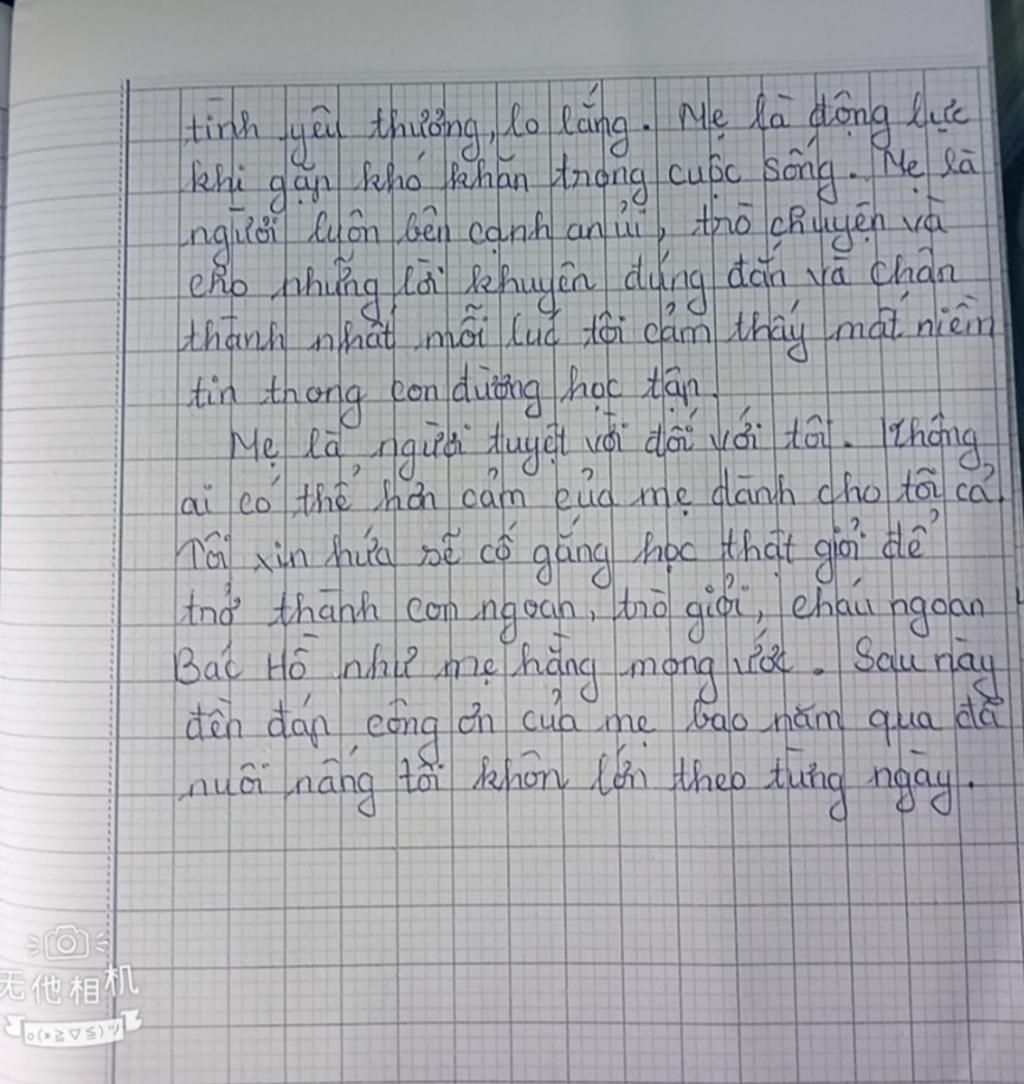 tình yêu thương, lo lắng. Mẹ là động lực
khi gặp khó khăn trong cuộc sống. Mẹ là
người luôn bên cạnh an ủi, trò chuyện và
cho những lời khuyên đúng đắn và chân
thành nhất mỗi lúc tôi cảm thấy mất niềm
tin trong con đường học tập.
Mẹ là người tuyệt vời đối với tôi. Không
ai có thể hơn cảm của mẹ dành cho tôi cả.
Tôi xin hứa sẽ cố gắng học thật giỏi để
trở thành con ngoan, trò giỏi, cháu ngoan
Bác Hồ như mẹ hằng mong ước. Sau này
đền đáp công ơn của mẹ bao năm qua đã
nuôi nấng tôi khôn lớn theo từng ngày.
无他相机
o(*≧▽≦)ツ